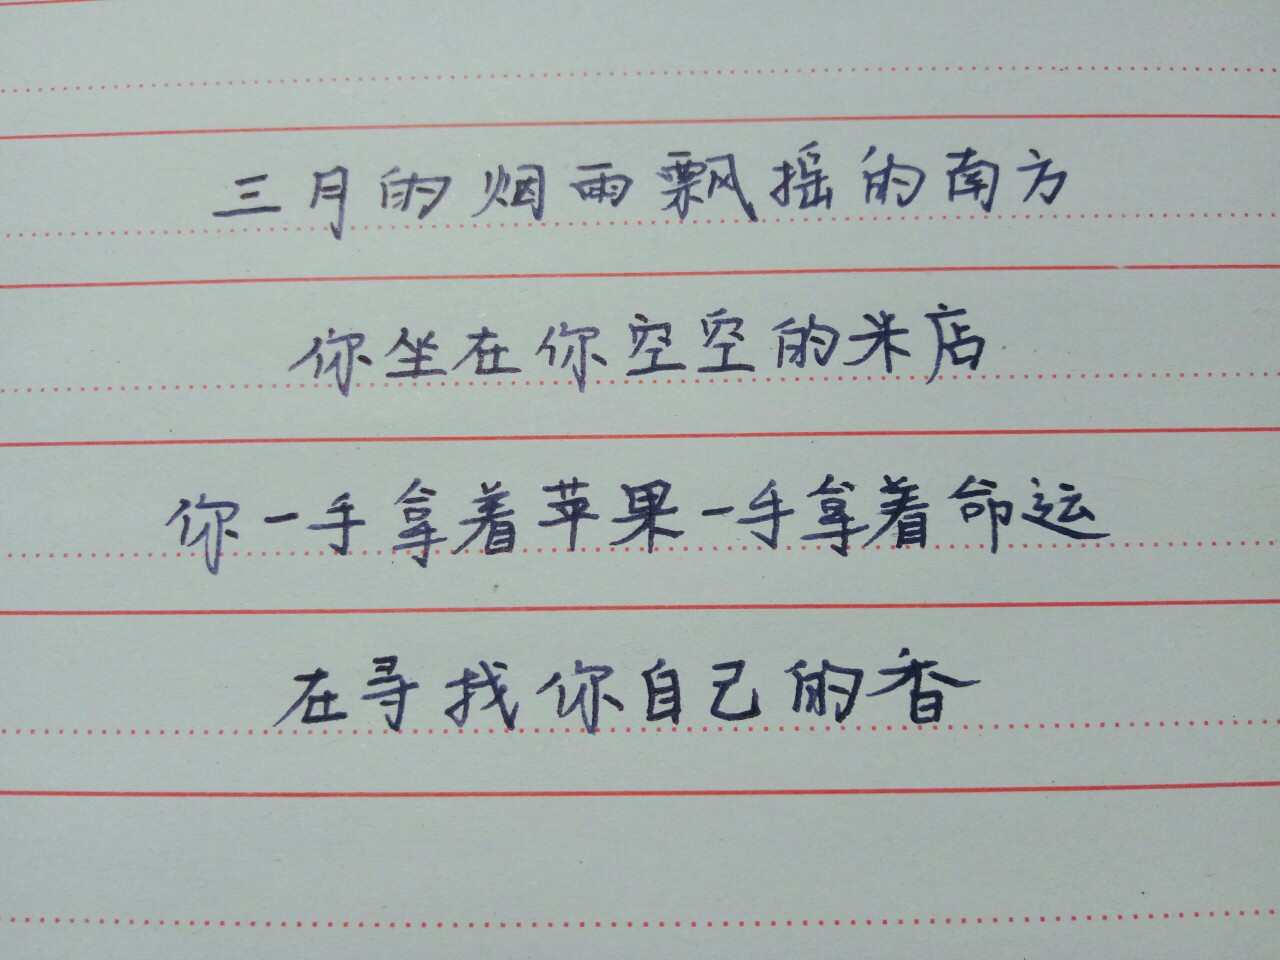 三月的烟雨飘摇的南方
你坐在你空空的米店
你一手拿着苹果一手拿着命运
在寻找你自己的香